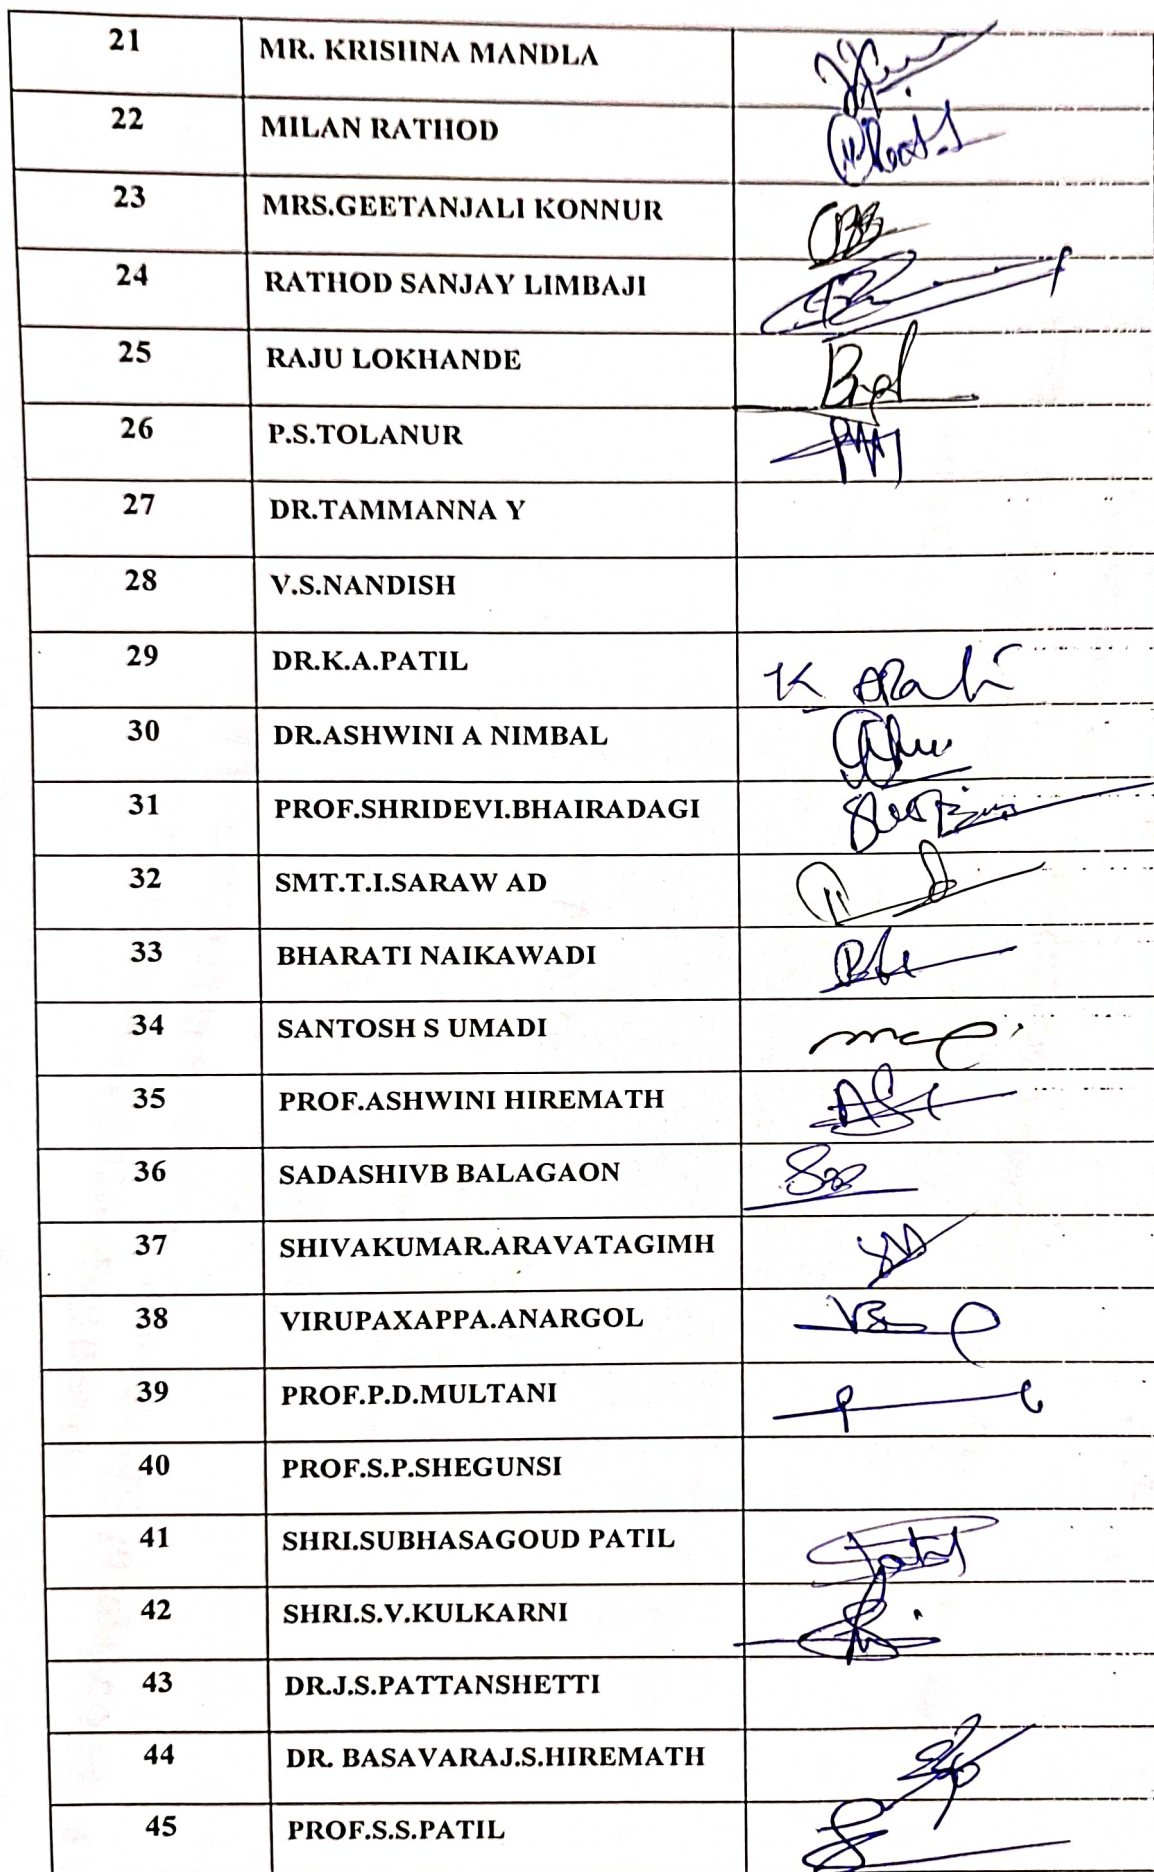 21 MR. KRISHNA MANDLA
22 MILAN RATHOD
23 MRS.GEETANJALI KONNUR
24 RATHOD SANJAY LIMBAJI
25 RAJU LOKHANDE
26 P.S.TOLANUR
27 DR.TAMMANNA Y
28 V.S.NANDISH
29 DR.K.A.PATIL
30 DR.ASHWINI A NIMBAL
31 PROF.SHRIDEVI.BHAIRADAGI
32 SMT.T.I.SARAW AD
33 BHARATI NAIKAWADI
34 SANTOSH S UMADI
35 PROF.ASHWINI HIREMATH
36 SADASHIVB BALAGAON
37 SHIVAKUMAR.ARAVATAGIMH
38 VIRUPAXAPPA.ANARGOL
39 PROF.P.D.MULTANI
40 PROF.S.P.SHEGUNSI
41 SHRI.SUBHASAGOUD PATIL
42 SHRI.S.V.KULKARNI
43 DR.J.S.PATTANSHETTI
44 DR. BASAVARAJ.S.HIREMATH
45 PROF.S.S.PATIL